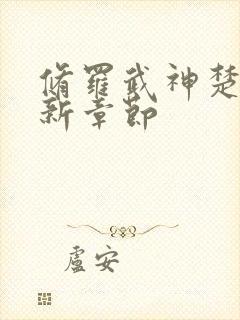 脩羅武神楚
新章節
盧安